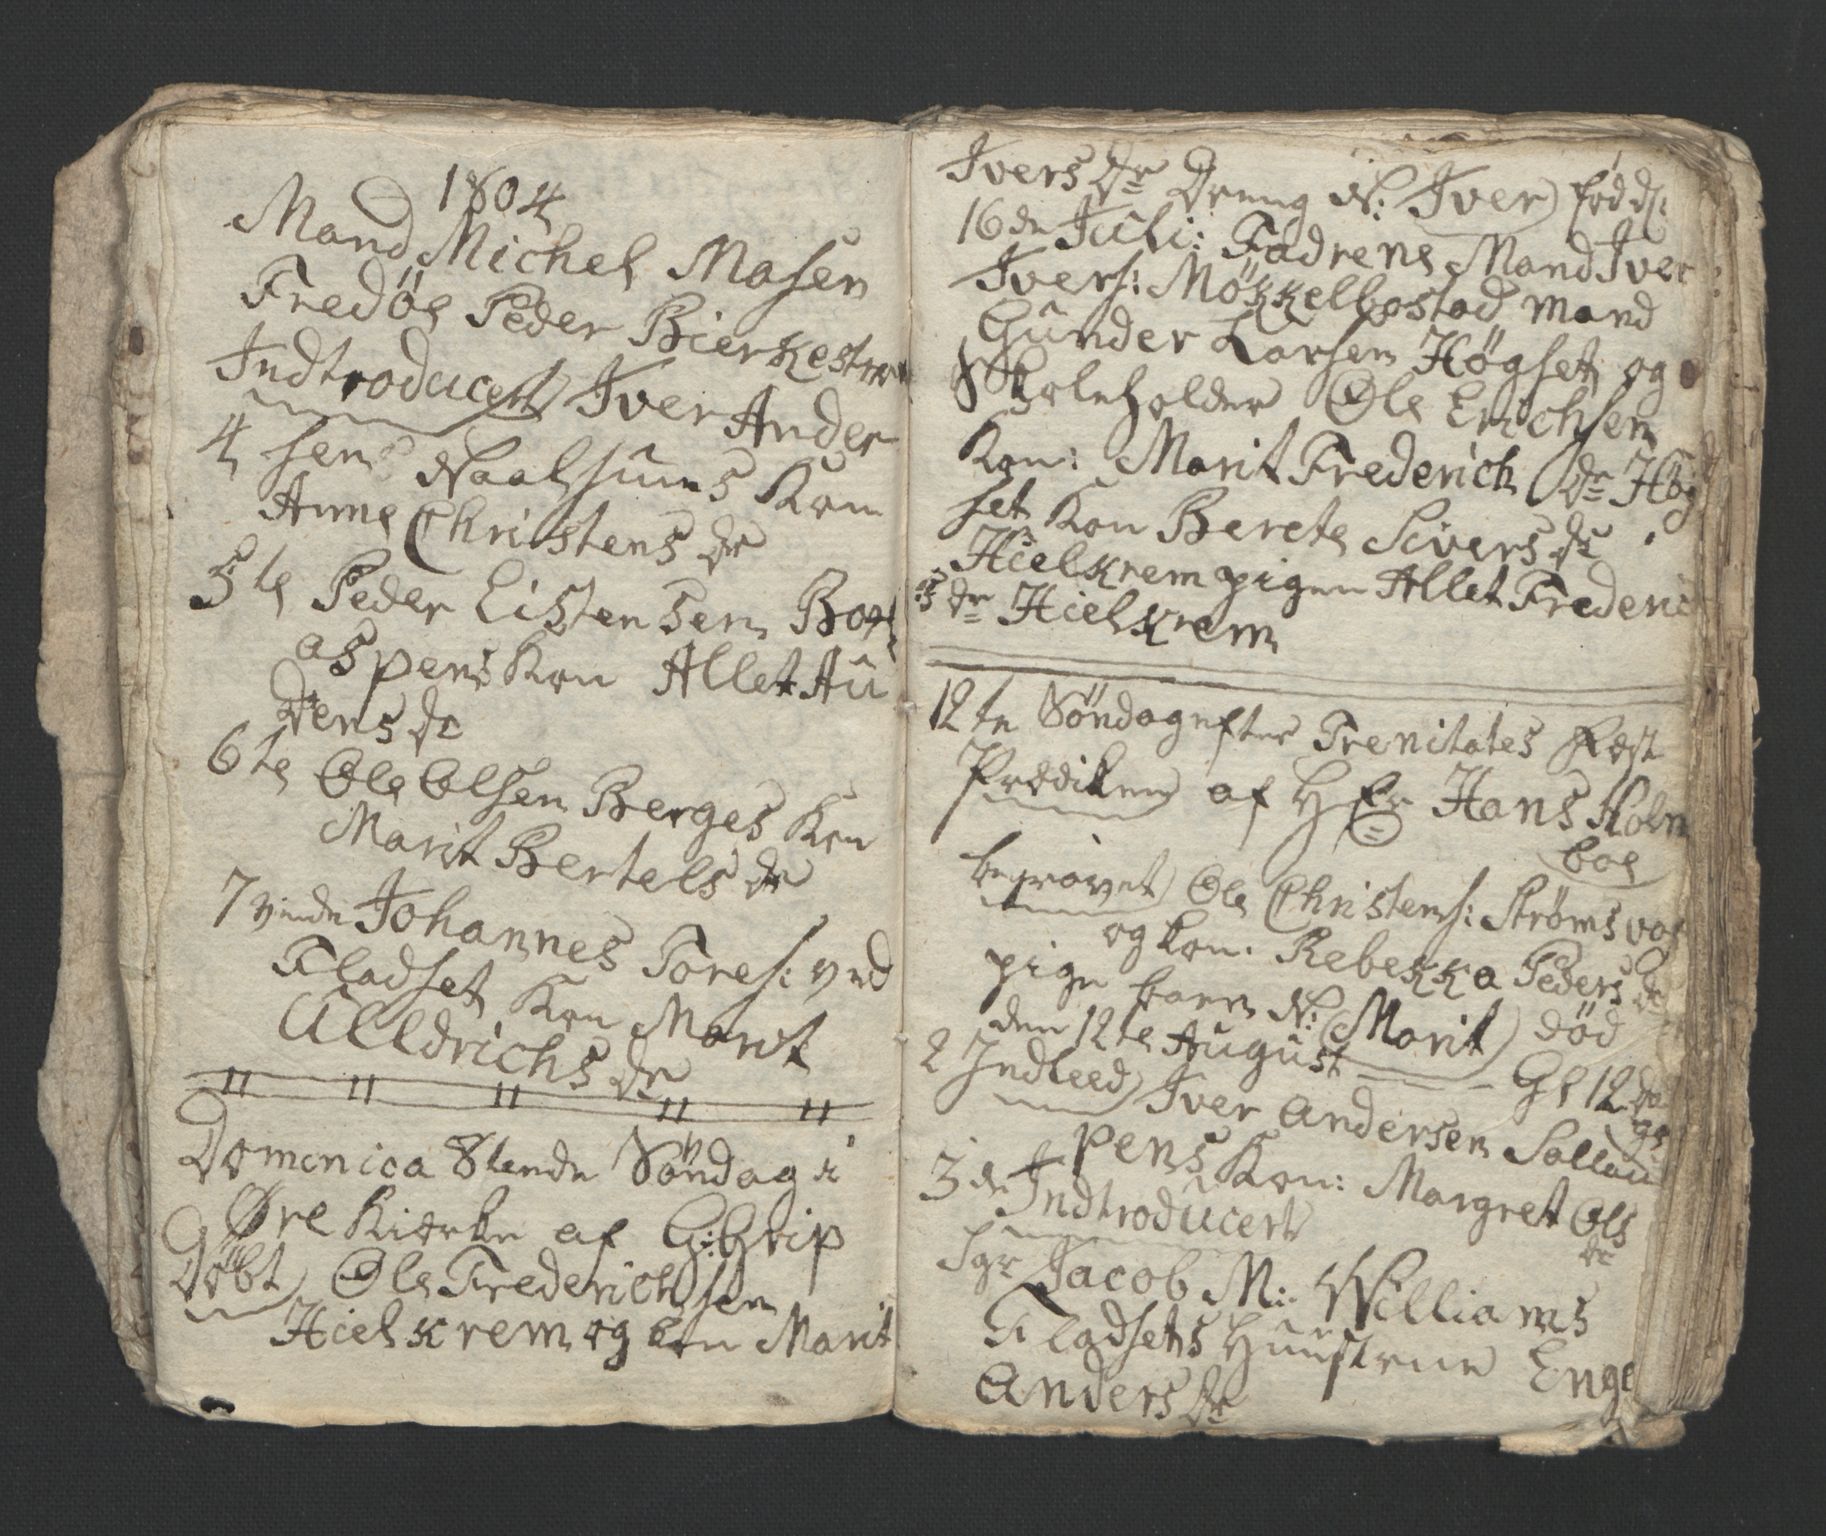 1804
Mand Michel Masen
Fredøe Peder Bierkestran
Indtroducert Iver Ander
4 sens Naalsunds Kon
Anne Christens dr
5te Peder Eistensen Bort
aspens Kon Allet Au
dens dr
6te Ole Olsen Berges Kon
Marit Bertels dr
7vende Johannes Tores: ved
Fladset Kon Marit
Ulldrichs dr
Domenica 8tende Söndag i
Øre Kierke af G: Grip
Döbt Ole Frederichsen
Hielkrem og kon Marit
Ivers dr Dreng N: Iver född d:
16de Juli: Fadrene Mand Iver
Ivers: Mökkelbostad Mand
Gunder Larsen Høgset og
Skoleholder Ole Erichsen
Kon: Marit Frederich dr Høg
set Kon Berete Sivers dr
Hielkrem pigen Allet Frederic
s dr Hielkrem
12te Söndag efter Trenitates Fæst
Prædiken af HEr Hans Holm
boe
begravet Ole Christens: Strømsvog
og kon: Rebekka Peders dr
pige barn N: Marit død
den 12te August Gl 12 da
ge
2 Indleed Iver Andersen Sollau
pens Kon: Margret Ols
dr
3de Indtroducert
Sgr Jacob M: Williams
Fladsets Hustrue Enge
Anders dr